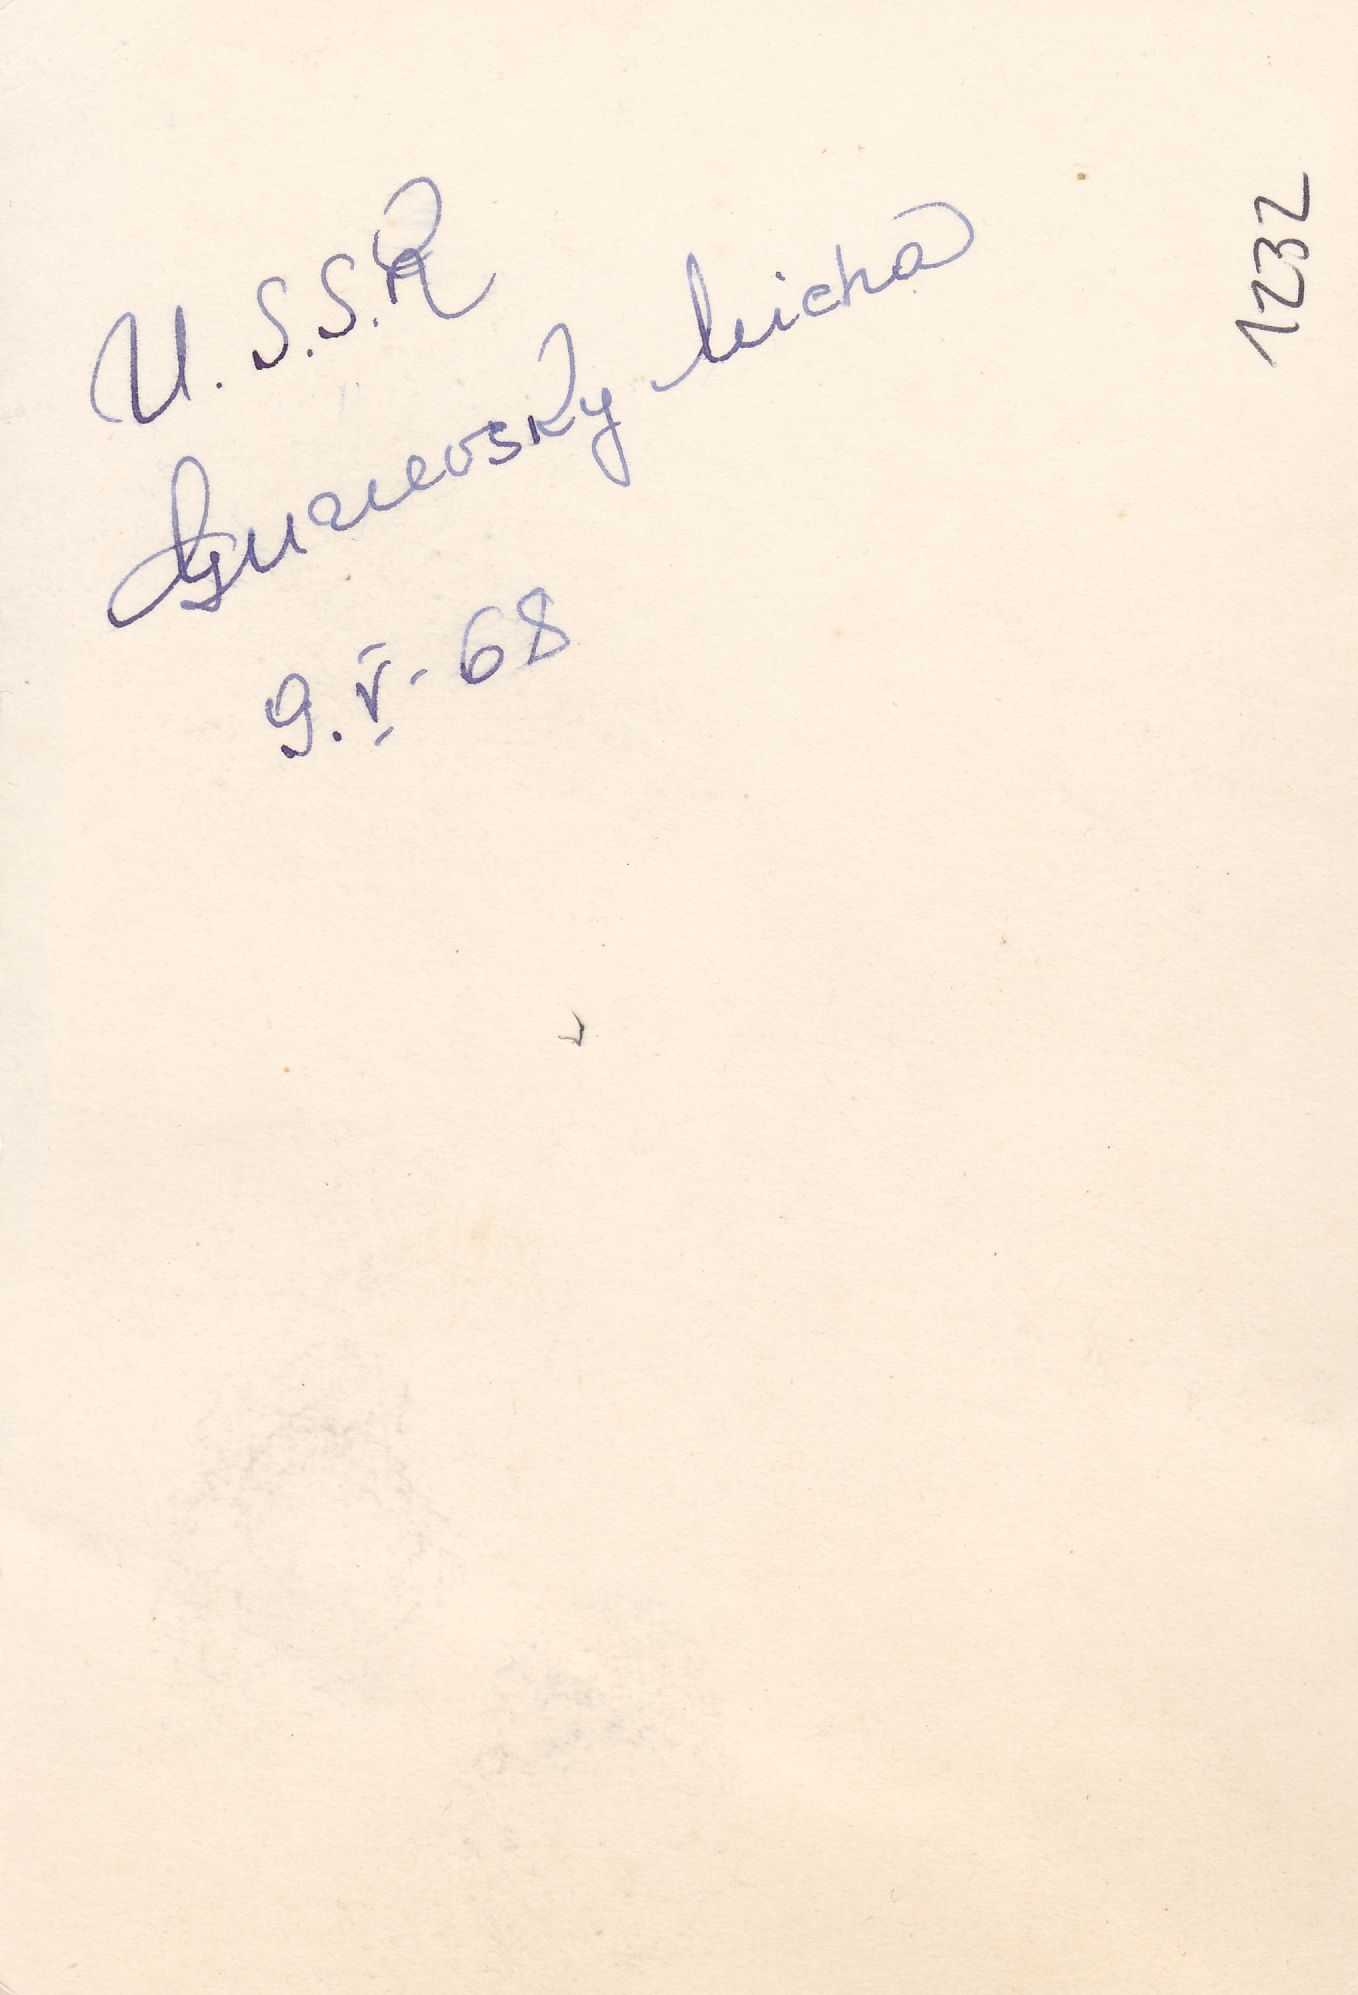 U.S.S.R
Micha
9.V-68
1232